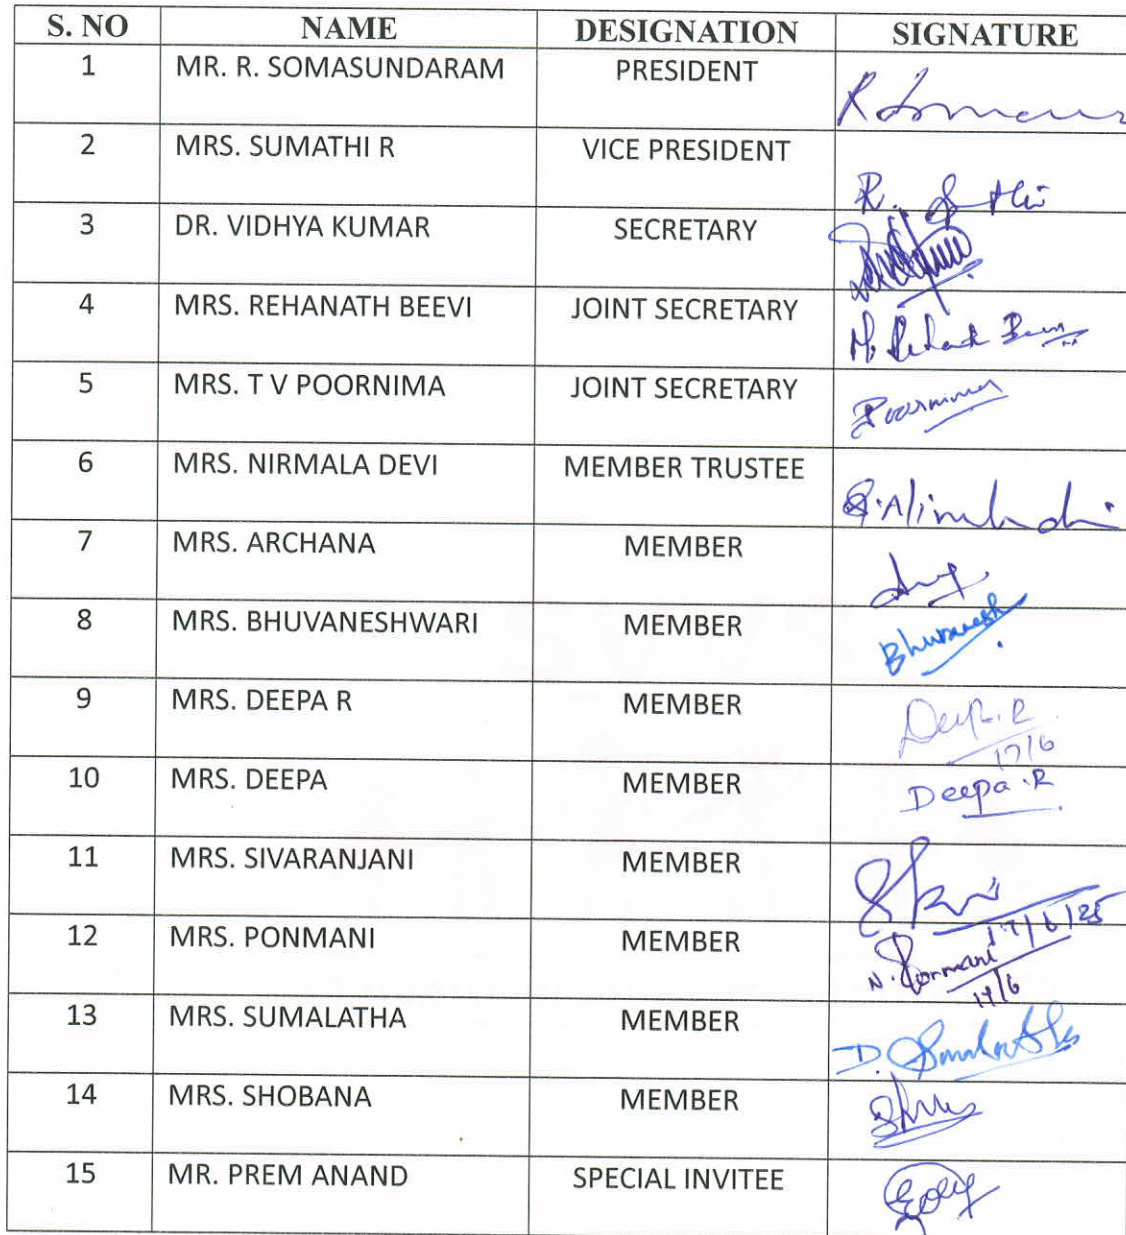 S. NO NAME DESIGNATION SIGNATURE
1 MR. R. SOMASUNDARAM PRESIDENT
2 MRS. SUMATHI R VICE PRESIDENT
R.
3 DR. VIDHYA KUMAR SECRETARY
4 MRS. REHANATH BEEVI JOINT SECRETARY
5 MRS. T V POORNIMA JOINT SECRETARY
6 MRS. NIRMALA DEVI MEMBER TRUSTEE
7 MRS. ARCHANA MEMBER
8 MRS. BHUVANESHWARI MEMBER
Bhuvanesh
9 MRS. DEEPA R MEMBER
Deepa. R
17/6
10 MRS. DEEPA MEMBER
Deepa .R
11 MRS. SIVARANJANI MEMBER
17/6/25
12 MRS. PONMANI MEMBER
N. Ponmani
17/6
13 MRS. SUMALATHA MEMBER
D. Sumalatha
14 MRS. SHOBANA MEMBER
15 MR. PREM ANAND SPECIAL INVITEE